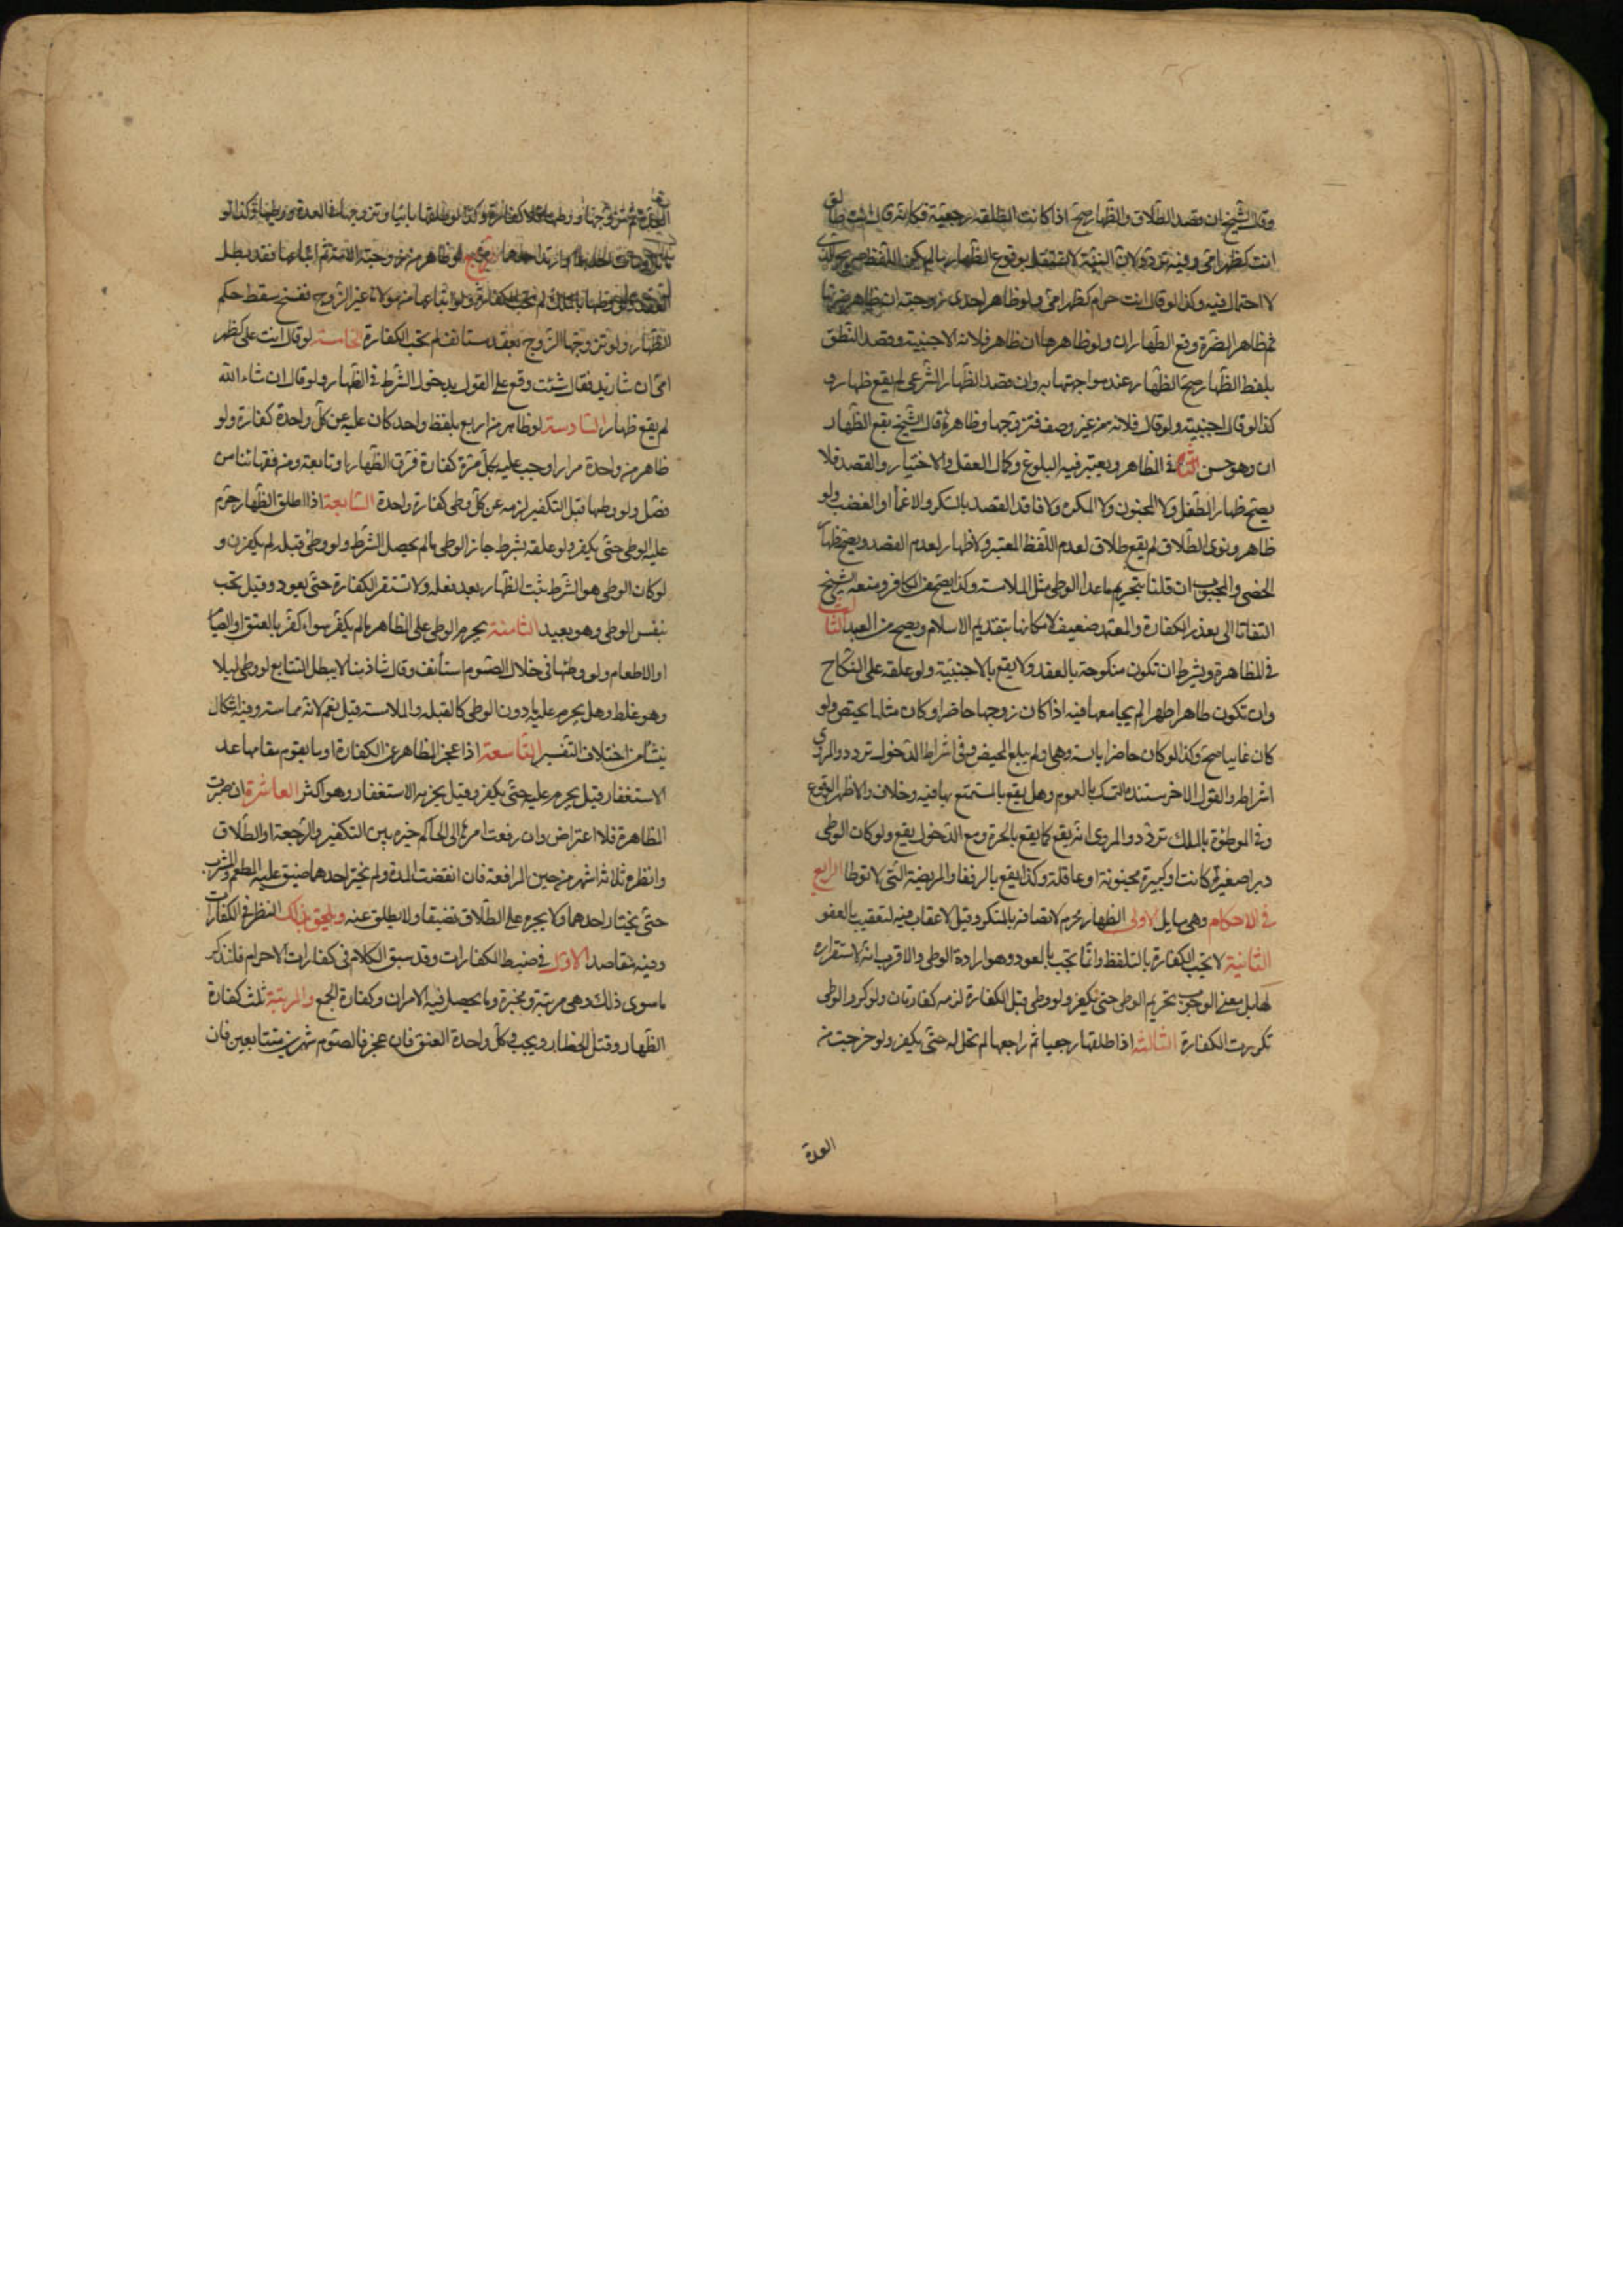 وقال الشيخ ان قصد الطلاق والظهار صح اذا كانت الطلقة رجعية فكانه قال انت طالق
انت كظهر امي وفيه تردد لان النية لا تستقل بوقوع الظهار ما لم يكن اللفظ صريحا الذي
لا احتمال فيه وكذا لو قال انت حرام كظهر امي ولو ظاهر احدى زوجتيه ان ظاهر ضرتها
ثم ظاهر الضرة وقع الظهاران ولو ظاهرها ان ظاهر فلانة الاجنبية وقصد النطق
بلفظ الظهار صح الظهار عند مواجهتها به وان قصد الظهار الشرعي لم يقع ظهار و
كذا لو قال اجنبية ولو قال فلانة من غير وصف فتزوجها وظاهرها قال الشيخ يقع الظهار
ان وهو حسن الثاني في المظاهر ويعتبر فيه البلوغ وكمال العقل والاختيار والقصد فلا
يصح ظهار الطفل ولا المجنون ولا المكره ولا فاقد القصد بالسكر والاغماء او الغضب ولو
ظاهر ونوى الطلاق لم يقع طلاق لعدم اللفظ المعتبر ولا ظهار لعدم القصد ويصح ظهار
الخصي والمجبوب ان قلنا بتحريم ما عدا الوطي مثل الملامسة وكذا يصح من الكافر ومنعه الشيخ
التفاتا الى تعذر الكفارة والمعتمد ضعيف لامكانها بتقديم الاسلام ويصح من العبد الثالث
في المظاهرة ويشترط ان تكون منكوحة بالعقد ولا يقع بالاجنبية ولو علقه على النكاح
وان تكون طاهرا طهرا لم يجامعها فيه اذا كان زوجها حاضرا وكان مثلها تحيض ولو
كان غايبا صح وكذا لو كان حاضرا يائسة وهي او لم يبلغ المحيض وفي اشراط الدخول تردد والمروي
اشراطه والقول الاخر مستنده التمسك بالعموم وهل يقع بالمستمتع بها فيه خلاف والاظهر الوقوع
وفي الموطؤة بالملك تردد والمروي انه يقع كما يقع بالحرة ومع الدخول يقع ولو كان الوطي
دبرا صغيرة كانت او كبيرة مجنونة او عاقلة وكذا يقع بالرتقاء والمريضة التي لا توطا الرابع
في الاحكام وهي مسايل الاولى الظهار محرم لاتصافه بالمنكر وقيل لا عقاب فيه لتعقيبه بالعفو
الثانية لا تجب الكفارة بالتلفظ وانما تجب بالعود وهو ارادة الوطي والاقرب انه لا استقرار
لها بل معنى الوجوب تحريم الوطي حتى يكفر ولو وطي قبل الكفارة لزمه كفارتان ولو كرر الوطي
تكررت الكفارة الثالثة اذا طلقها رجعيا ثم راجعها لم تحل له حتى يكفر ولو خرجت من
العدة
العدة ثم تزوجها ووطئها فلا كفارة وكذا لو طلقها باينا وتزوجها في العدة ووطئها وكذا لو
مات احدهما او ارتد احدهما الرابع لو ظاهر من زوجته الامة ثم ابتاعها فقد بطل
العقد ولو وطئها بالملك لم تجب الكفارة ولو ابتاعها من مولاها غير الزوج ففسخ سقط حكم
الظهار ولو تزوجها الزوج بعقد مستانف لم تجب الكفارة الخامسة لو قال انت علي كظهر
امي ان شاء زيد فقال شئت وقع على القول بدخول الشرط في الظهار ولو قال ان شاء الله
لم يقع ظهار السادسة لو ظاهر من اربع بلفظ واحد كان عليه عن كل واحدة كفارة ولو
ظاهر من واحدة مرارا وجب عليه بكل مرة كفارة فرق الظهار او تابعه ومن فقهائنا من
فصل ولو وطئها قبل التكفير لزمه عن كل وطي كفارة واحدة السابعة اذا اطلق الظهار حرم
عليه الوطي حتى يكفر ولو علقه بشرط جاز الوطي ما لم يحصل الشرط ولو وطئ قبله لم يكفر و
لو كان الوطي هو الشرط ثبت الظهار بعد فعله ولا تستقر الكفارة حتى يعود وقيل تجب
بنفس الوطي وهو بعيد الثامنة يحرم الوطي على المظاهر ما لم يكفر سواء كفر بالعتق او الصيام
او الاطعام ولو وطئها في خلال الصوم استأنف وقال شاذ منا لا يبطل التتابع لو وطي ليلا
وهو غلط وهل يحرم عليه ما دون الوطي كالقبلة والملامسة قيل نعم لانه مماسة وفيه اشكال
ينشأ من اختلاف التفسير التاسعة اذا عجز المظاهر عن الكفارة او ما يقوم مقامها عدا
الاستغفار قيل يحرم عليه حتى يكفر وقيل يجزيه الاستغفار وهو اكثر العاشرة ان صبرت
المظاهرة فلا اعتراض وان رفعت امرها الى الحاكم خيره بين التكفير والرجعة او الطلاق
وانظره ثلاثة اشهر من حين المرافعة فان انقضت المدة ولم يختر احدهما ضيق عليه المطعم والمشرب
حتى يختار احدهما ولا يجبره على الطلاق تضييقا ولا يطلق عنه ويلحق بذلك النظر في الكفارات
وفيه مقاصد الاول في ضبط الكفارات وقد سبق الكلام في كفارات الاحرام فلنذكر
ما سوى ذلك وهي مرتبة ومخيرة وما يحصل فيه الامران وكفارة الجمع والمرتبة ثلث كفارة
الظهار وقتل الخطا ويجب في كل واحدة العتق فان عجز فالصوم شهرين متتابعين فان